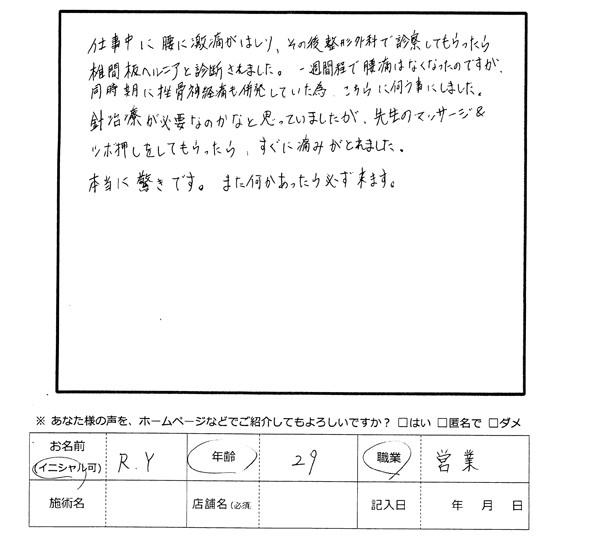 仕事中に腰に激痛がはしり、その後整形外科で診察してもらったら
椎間板ヘルニアと診断されました。一週間程で腰痛はなくなったのですが、
同時期に坐骨神経痛も併発していた為、こちらに伺う事にしました。
針治療が必要なのかなと思っていましたが、先生のマッサージ&
ツボ押しをしてもらったら、すぐに痛みがとれました。
本当に驚きです。また何かあったら必ず来ます。
※ あなた様の声を、ホームページなどでご紹介してもよろしいですか？ □はい □匿名で □ダメ
お名前
(イニシャル可) R.Y 年齢 29 職業 営業
施術名 店舗名(必須 記入日 年 月 日